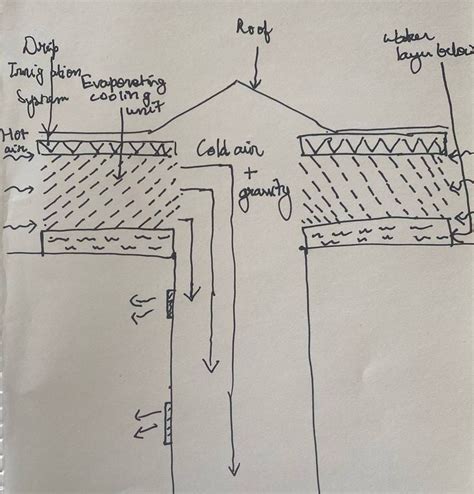 Roof
Drip
Irrigation
System
Evaporating
cooling
unit
Hot
air
Cold air
+
gravity
layer below